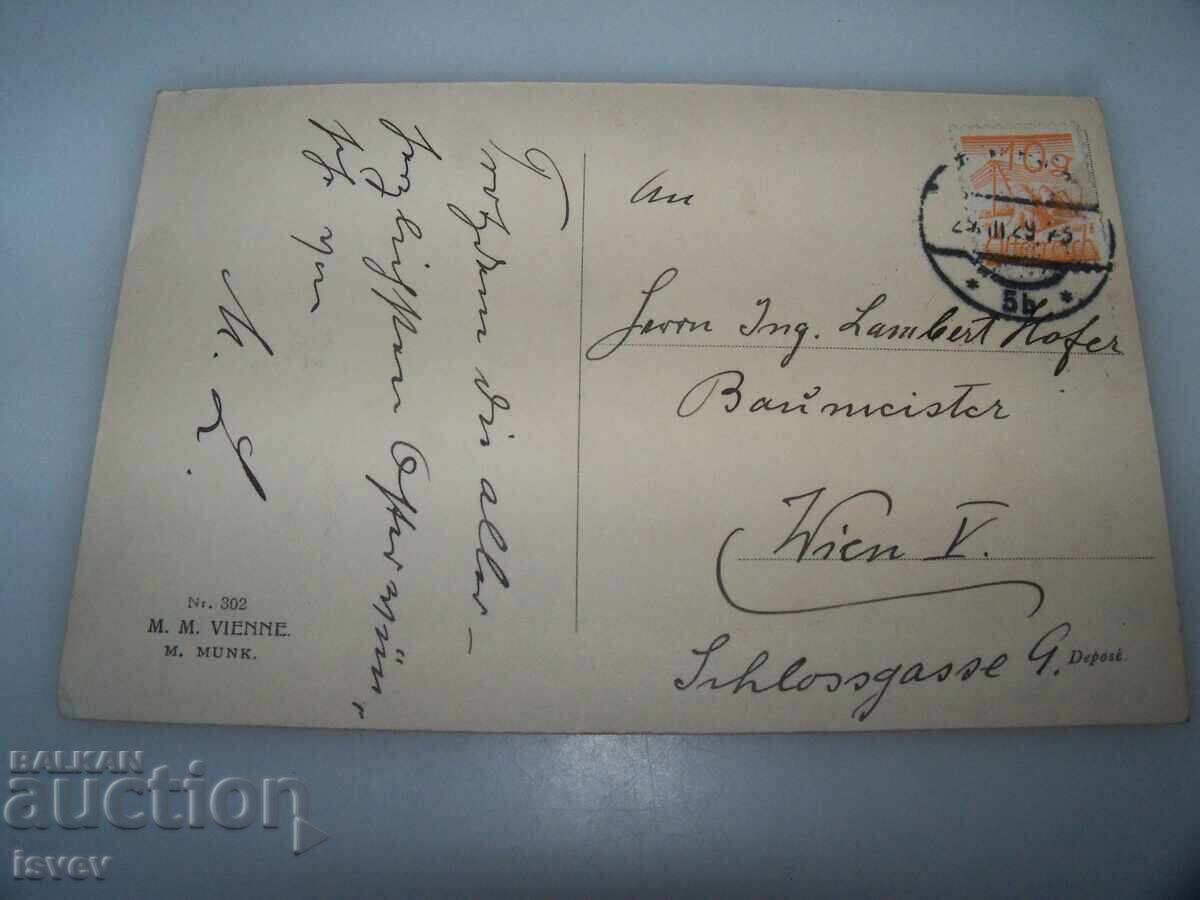 Trotzdem die aller-
herzlichsten Osterwün-
sche von
M. L.
Nr. 302
M. M. VIENNE.
M. MUNK.
10g
Österreich
29.III.29
* 5b *
An
Herrn Ing. Lambert Hofer
Baumeister
Wien V.
Schlossgasse 9.
Deposé.
BALKAN
auction
isvev